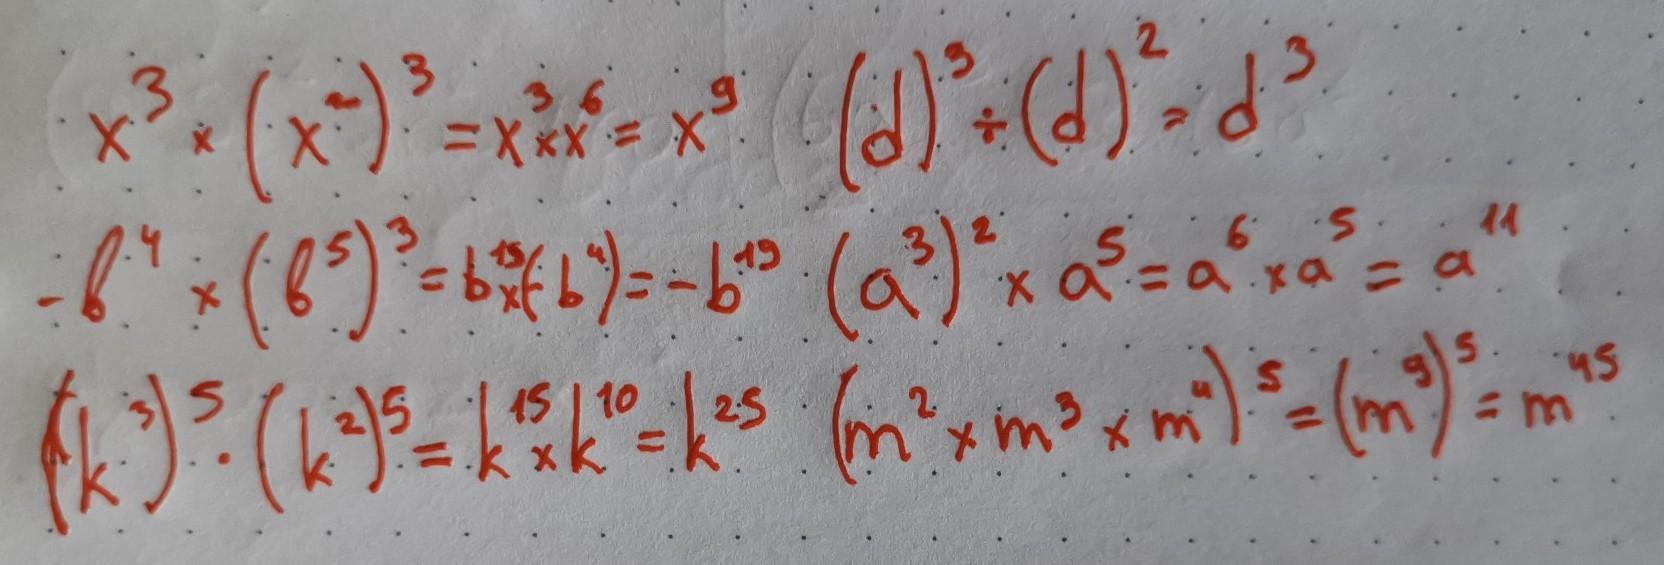 x³ × (x²)³ = x³ × x⁶ = x⁹ (d)³ ÷ (d)² = d³
-b⁴ × (b⁵)³ = b¹⁵ × (-b⁴) = -b¹⁹ (a³)² × a⁵ = a⁶ × a⁵ = a¹¹
(k³)⁵ · (k²)⁵ = k¹⁵ × k¹⁰ = k²⁵ (m² × m³ × m⁴)⁵ = (m⁹)⁵ = m⁴⁵